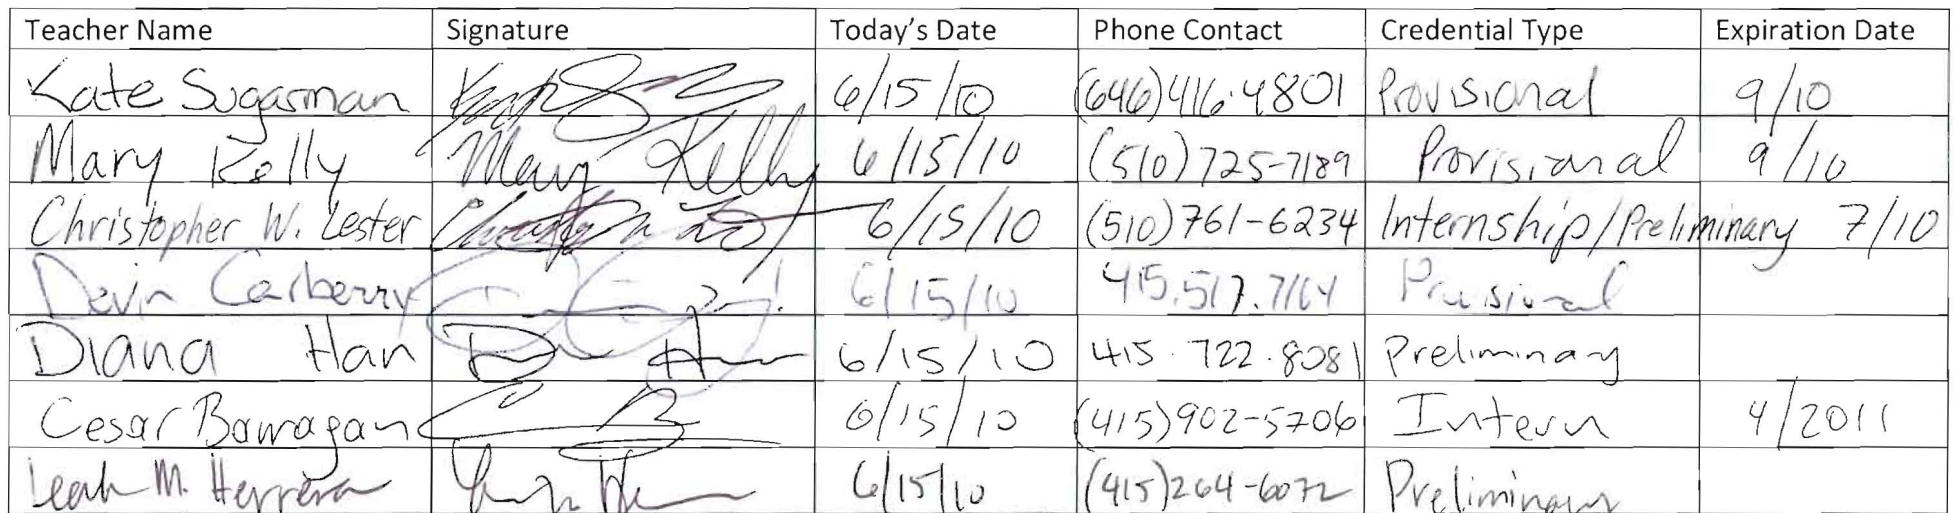 Teacher Name Signature Today's Date Phone Contact Credential Type Expiration Date
Kate Sugarman 6/15/10 (646)416-4801 Provisional 9/10
Mary Kelly Mary Kelly 6/15/10 (510)725-7189 Provisional 9/10
Christopher W. Lester 6/15/10 (510)761-6234 Internship/Preliminary 7/10
Devin Carberry 6/15/10 415.517.7164 Provisional
Diana Han 6/15/10 415.722.8081 Preliminary
Cesar Barragan 6/15/10 (415)902-5706 Intern 4/2011
Leah M. Herrera 6/15/10 (415)264-6072 Preliminary